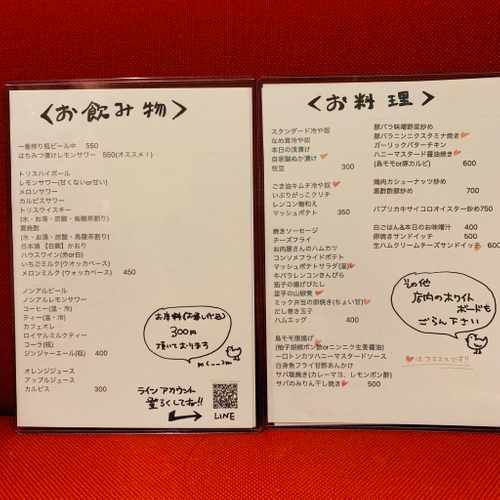 <お飲み物>
一番搾り瓶ビール中 550
はちみつ漬けレモンサワー 550(オススメ！)
トリスハイボール
レモンサワー(甘くないor甘い)
メロンサワー
カルピスサワー
トリスウイスキー
(水・お湯・炭酸・烏龍茶割り)
(水・お湯・炭酸・烏龍茶割り)
日本酒 【白鹿】かおり
ハウスワイン(赤or白)
いちごミルク(ウオッカベース)
メロンミルク (ウォッカベース) 450
ノンアルビール
ノンアルレモンサワー
コーヒー(温・冷)
ティー(温・冷)
カフェオレ
ロイヤルミルクティー
コーラ(瓶)
ジンジャーエール(瓶) 400
オレンジジュース
アップルジュース
カルピス 300
お席料(お通し代込)
300円
頂いております
m(__)m
ラインアカウント
登ろくしてね!!
LINE
<お料理>
スタンダード冷や奴
なめ茸冷や奴
本日の浅漬け
自家製ぬか漬け
枝豆 300
ごま油キムチ冷や奴
いぶりがっこクリチ
レンコン磯和え
マッシュポテト 350
焼きソーセージ
チーズフライ
お肉屋さんのハムカツ
コンソメフライドポテト
マッシュポテトサラダ(温)
牛バラレンコンきんぴら
茄子の揚げびたし
里芋の山椒煮
ミック弁当の卵焼き(ちょい甘)
だし巻き玉子
ハムエッグ 400
鳥モモ唐揚げ
(柚子胡椒ポン酢orニンニク生姜醤油)
一口トンカツハニーマスタードソース
白身魚フライ甘酢あんかけ
サバ竜焼き(カレーマヨ、レモンポン酢)
サバのみりん干し焼き 500
豚バラ味噌野菜炒め
豚バラニンニクスタミナ焼き
ガーリックバターチキン
ハニーマスタード醤油焼き
(鳥モモor豚カルビ) 600
鶏肉カシューナッツ炒め
黒酢酢豚炒め 700
パプリカ牛サイコロオイスター炒め750
白ごはん&本日のお味噌汁 400
卵焼きサンドイッチ 500
生ハムクリームチーズサンドイッチ 600
その他
店内のホワイト
ボードも
ごらん下さい
はオススメです!!